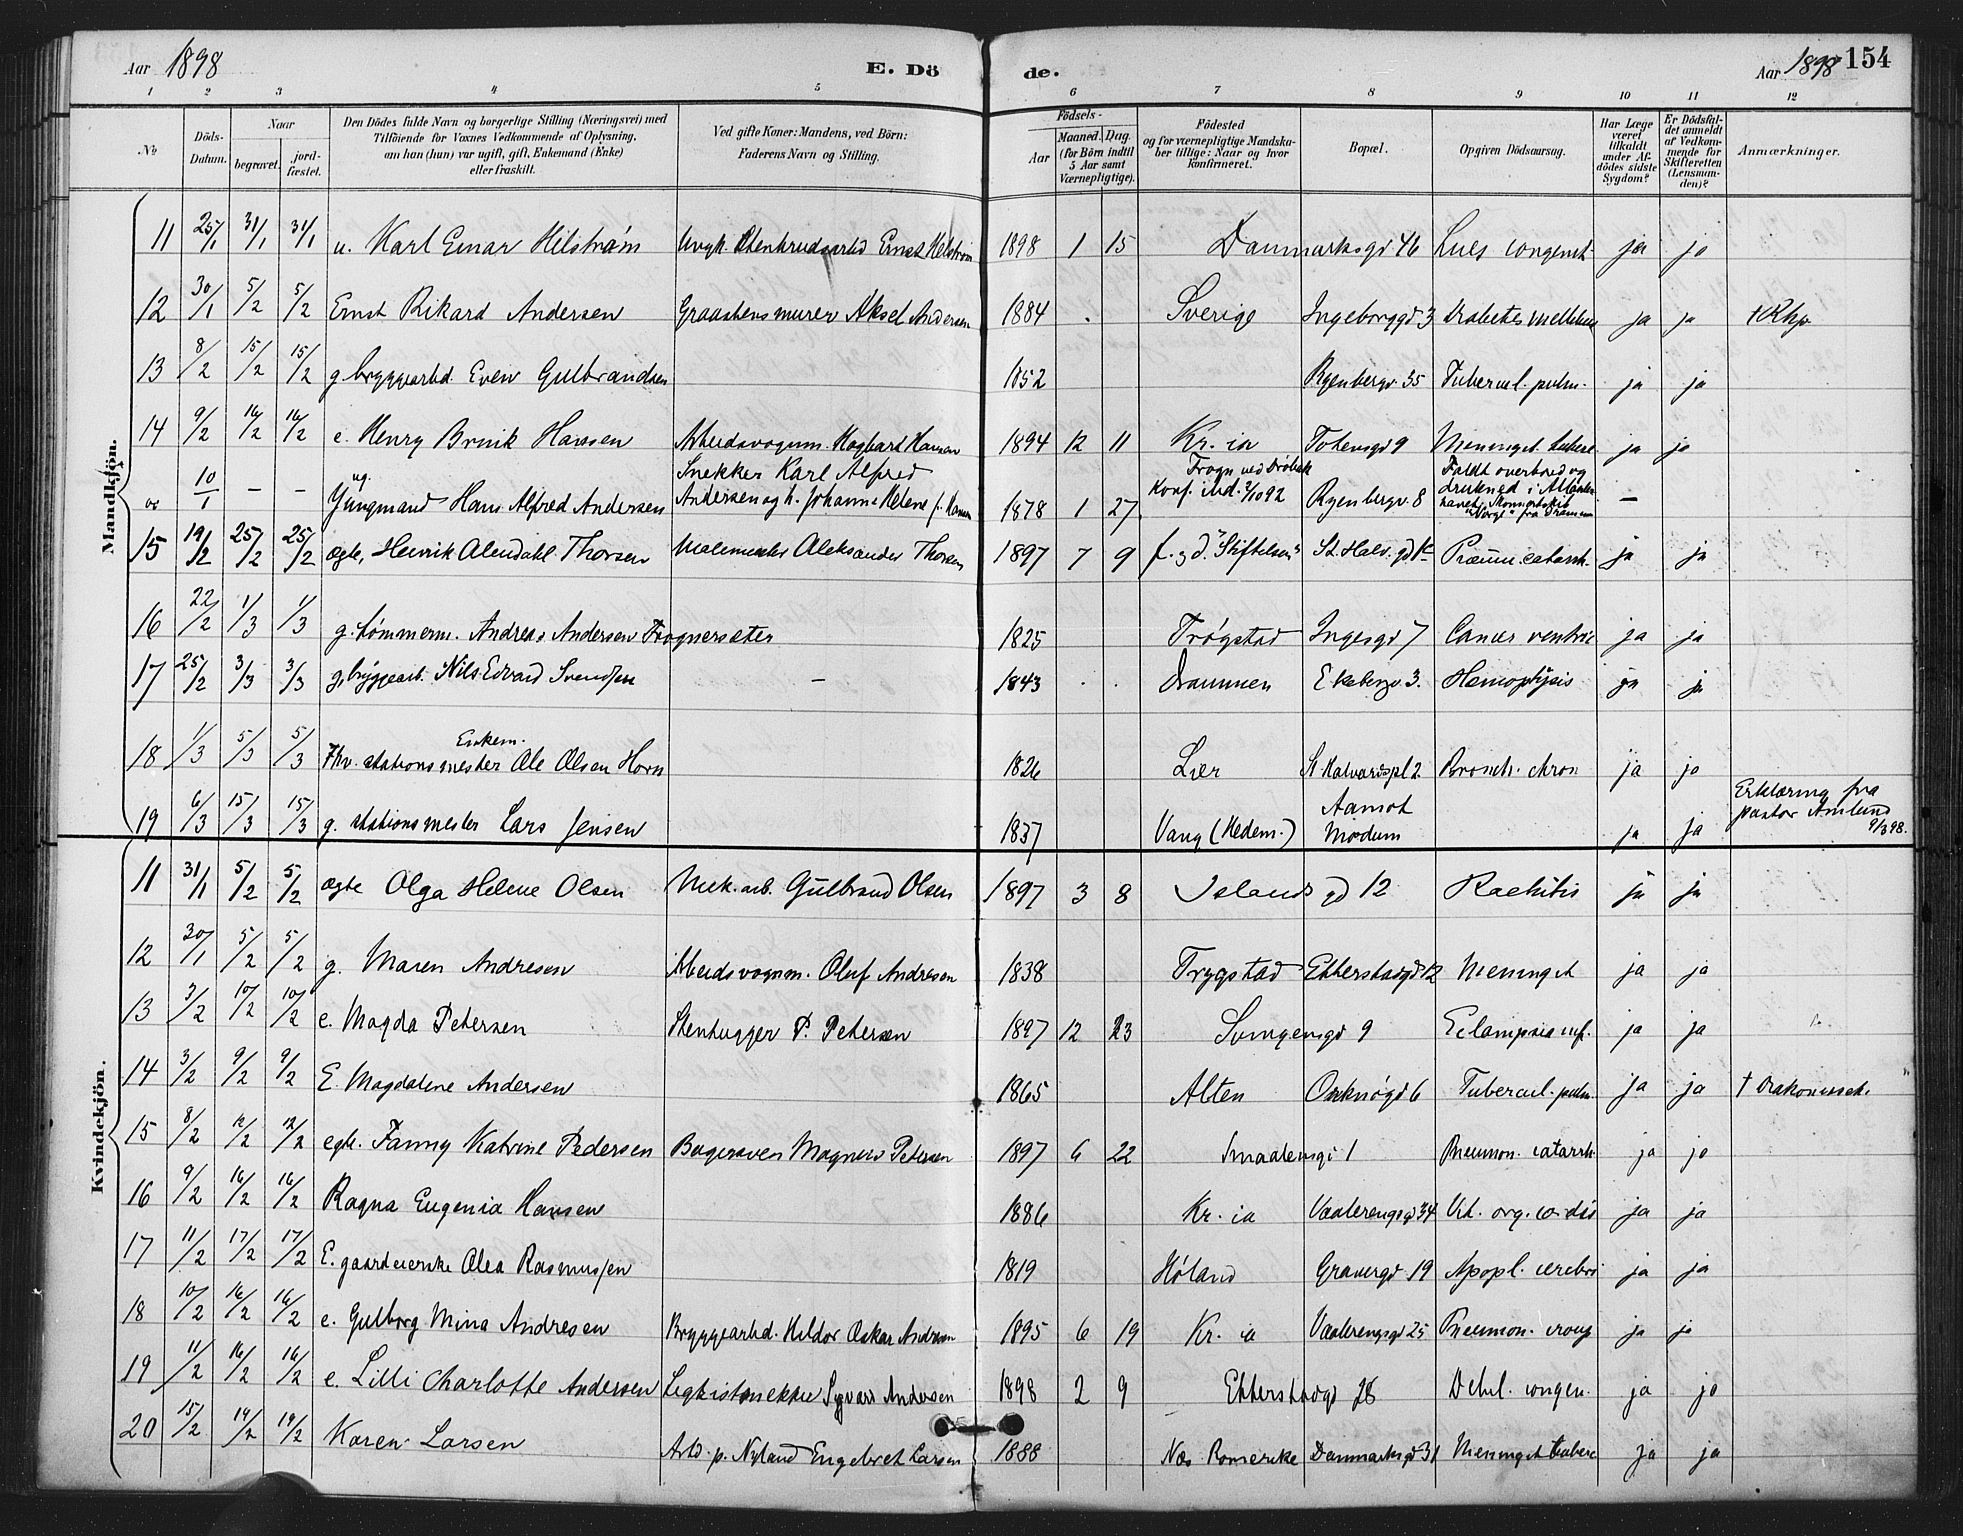 Aar 1898
E. Dö
de.
Aar 1898 154
1 2 3 4 5 6 7 8 9 10 11 12
No
Döds-Datum.
Naar
begravet.
jord-fæstet.
Den Dödes fulde Navn og borgerlige Stilling (Næringsvei) med
Tilföiende for Voxnes Vedkommende af Oplysning,
om han (hun) var ugift, gift, Enkemand (Enke)
eller fraskilt.
Ved gifte Koner: Mandens, ved Börn:
Faderens Navn og Stilling.
Födsels-
Aar
Maaned. Dag.
(for Börn indtil
5 Aar samt
Værnepligtige).
Födested
og for værnepligtige Mandska-
ber tillige: Naar og hvor
konfirmeret.
Bopæl.
Opgiven Dödsaarsag.
Har Læge
været
tilkaldt
under Af-
dödes sidste
Sygdom?
Er Dödsfal-
det anmeldt
af Vedkom-
mende for
Skifteretten
(Lensman-
den)?
Anmærkninger.
Mandkjön.
11 25/1 31/1 31/1 u. Karl Einar Hilström Ernst Hilström 1898 1 15 Danmarksgd 46 Lues congenit. ja ja
12 30/1 5/2 5/2 Ernst Rikard Andersen Graastensmurer Aksel Andersen 1884 . Sverige Ingeborggd 3 Diabetes mellitus ja ja
13 8/2 15/2 15/2 g bryggearbd. Even Gulbrandsen 1852 Ryenbergv 35 Tubercul. pulm. ja ja
14 9/2 16/2 16/2 e. Henry Brink Hansen Arbeidsvognm. Hagbart Hansen 1894 12 11 Kr. ia Totensgd 9 Meningit. tuberc. ja ja
10/1 — — ug. Yungmand Hans Alfred Andersen Snekker Karl Alfred
Andersen og h. Johanne Helene f. Hansen 1878 1 27 Frogn ved Dröbak
Konf. ibd. 2/10 92 Ryenbergv 8 Faldt overbord og
drukned i Atlanter-
havet, Skonnertskib
"Norge" fra Drammen —
15 19/2 25/2 25/2 ægte, Henrik Alendahl Thorsen Malermester Aleksander Thorsen 1897 7 9 f. g d. "Stiftelsen" St. Halv. gd Pneum. catarrh. ja ja
16 22/2 1/3 1/3 g. tömmerm. Andreas Andersen Frognersæter 1825 Trögstad Ingesgd 7 Cancer ventric ja ja
17 25/2 3/3 3/3 g, bryggearb. Nils Edvard Svendsen — 1843 . . Drammen Ekebergv 3. Hemoptysis ja ja
18 1/3 5/3 5/3 Enkem.
Fhv. stationsmester Ole Olsen Horn 1826 Lier St Halvardspl 2 Bronch. chron ja ja
19 6/3 15/3 15/3 g. stationsmester Lars Jensen 1837 Vang (Hedem.) Aamot
Modum ja ja Erklæring fra
pastor Amlund
9/3 98.
Kvindekjön.
11 31/1 5/2 5/2 ægte Olga Helene Olsen Mek. arb. Gulbrand Olsen 1897 3 8 Islands gd 12 Rachitis ja ja
12 30/1 5/2 5/2 g. Maren Andresen Arbeidsvognm. Oluf Andresen 1838 Trygstad Etterstadgd 12 Meningit ja ja
13 3/2 10/2 10/2 e. Magda Petersen Stenhugger P. Petersen 1897 12 23 9 Eclampsia inf. ja ja
14 3/2 9/2 9/2 E Magdalene Andersen 1865 Alten Orknögd 6 Tubercul. pulm. ja ja
15 8/2 12/2 12/2 egte. Fanny Katrine Pedersen Bagersven Magnus Petersen 1897 6 22 Smaalensgd 1 Pneumon. catarrh. ja ja
16 9/2 16/2 16/2 Ragna Eugenia Hansen 1886 Kr. ia Vaalerengsgd 34 Vit. org. cordis ja ja
17 11/2 17/2 17/2 E. gaardeierske Olea Rasmussen 1819 Höland Gravergd 19 Apopl. cerebri ja ja
18 10/2 16/2 16/2 e. Gulborg Mina Andresen Bryggearbd. Hildor Oskar Andresen 1895 6 19 Kr. ia Vaalerengsgd 25 Pneumon. croup ja ja
19 11/2 16/2 16/2 e. Lilli Charlotte Andersen Andersen 1898 2 9 Etterstadgd 28 Debil. congen. ja ja
20 15/2 19/2 19/2 Karen Larsen Arbd. p. Nyland Engebret Larsen 1888 Næs Romerike Danmarksgd 31 Meningit tuberc ja ja